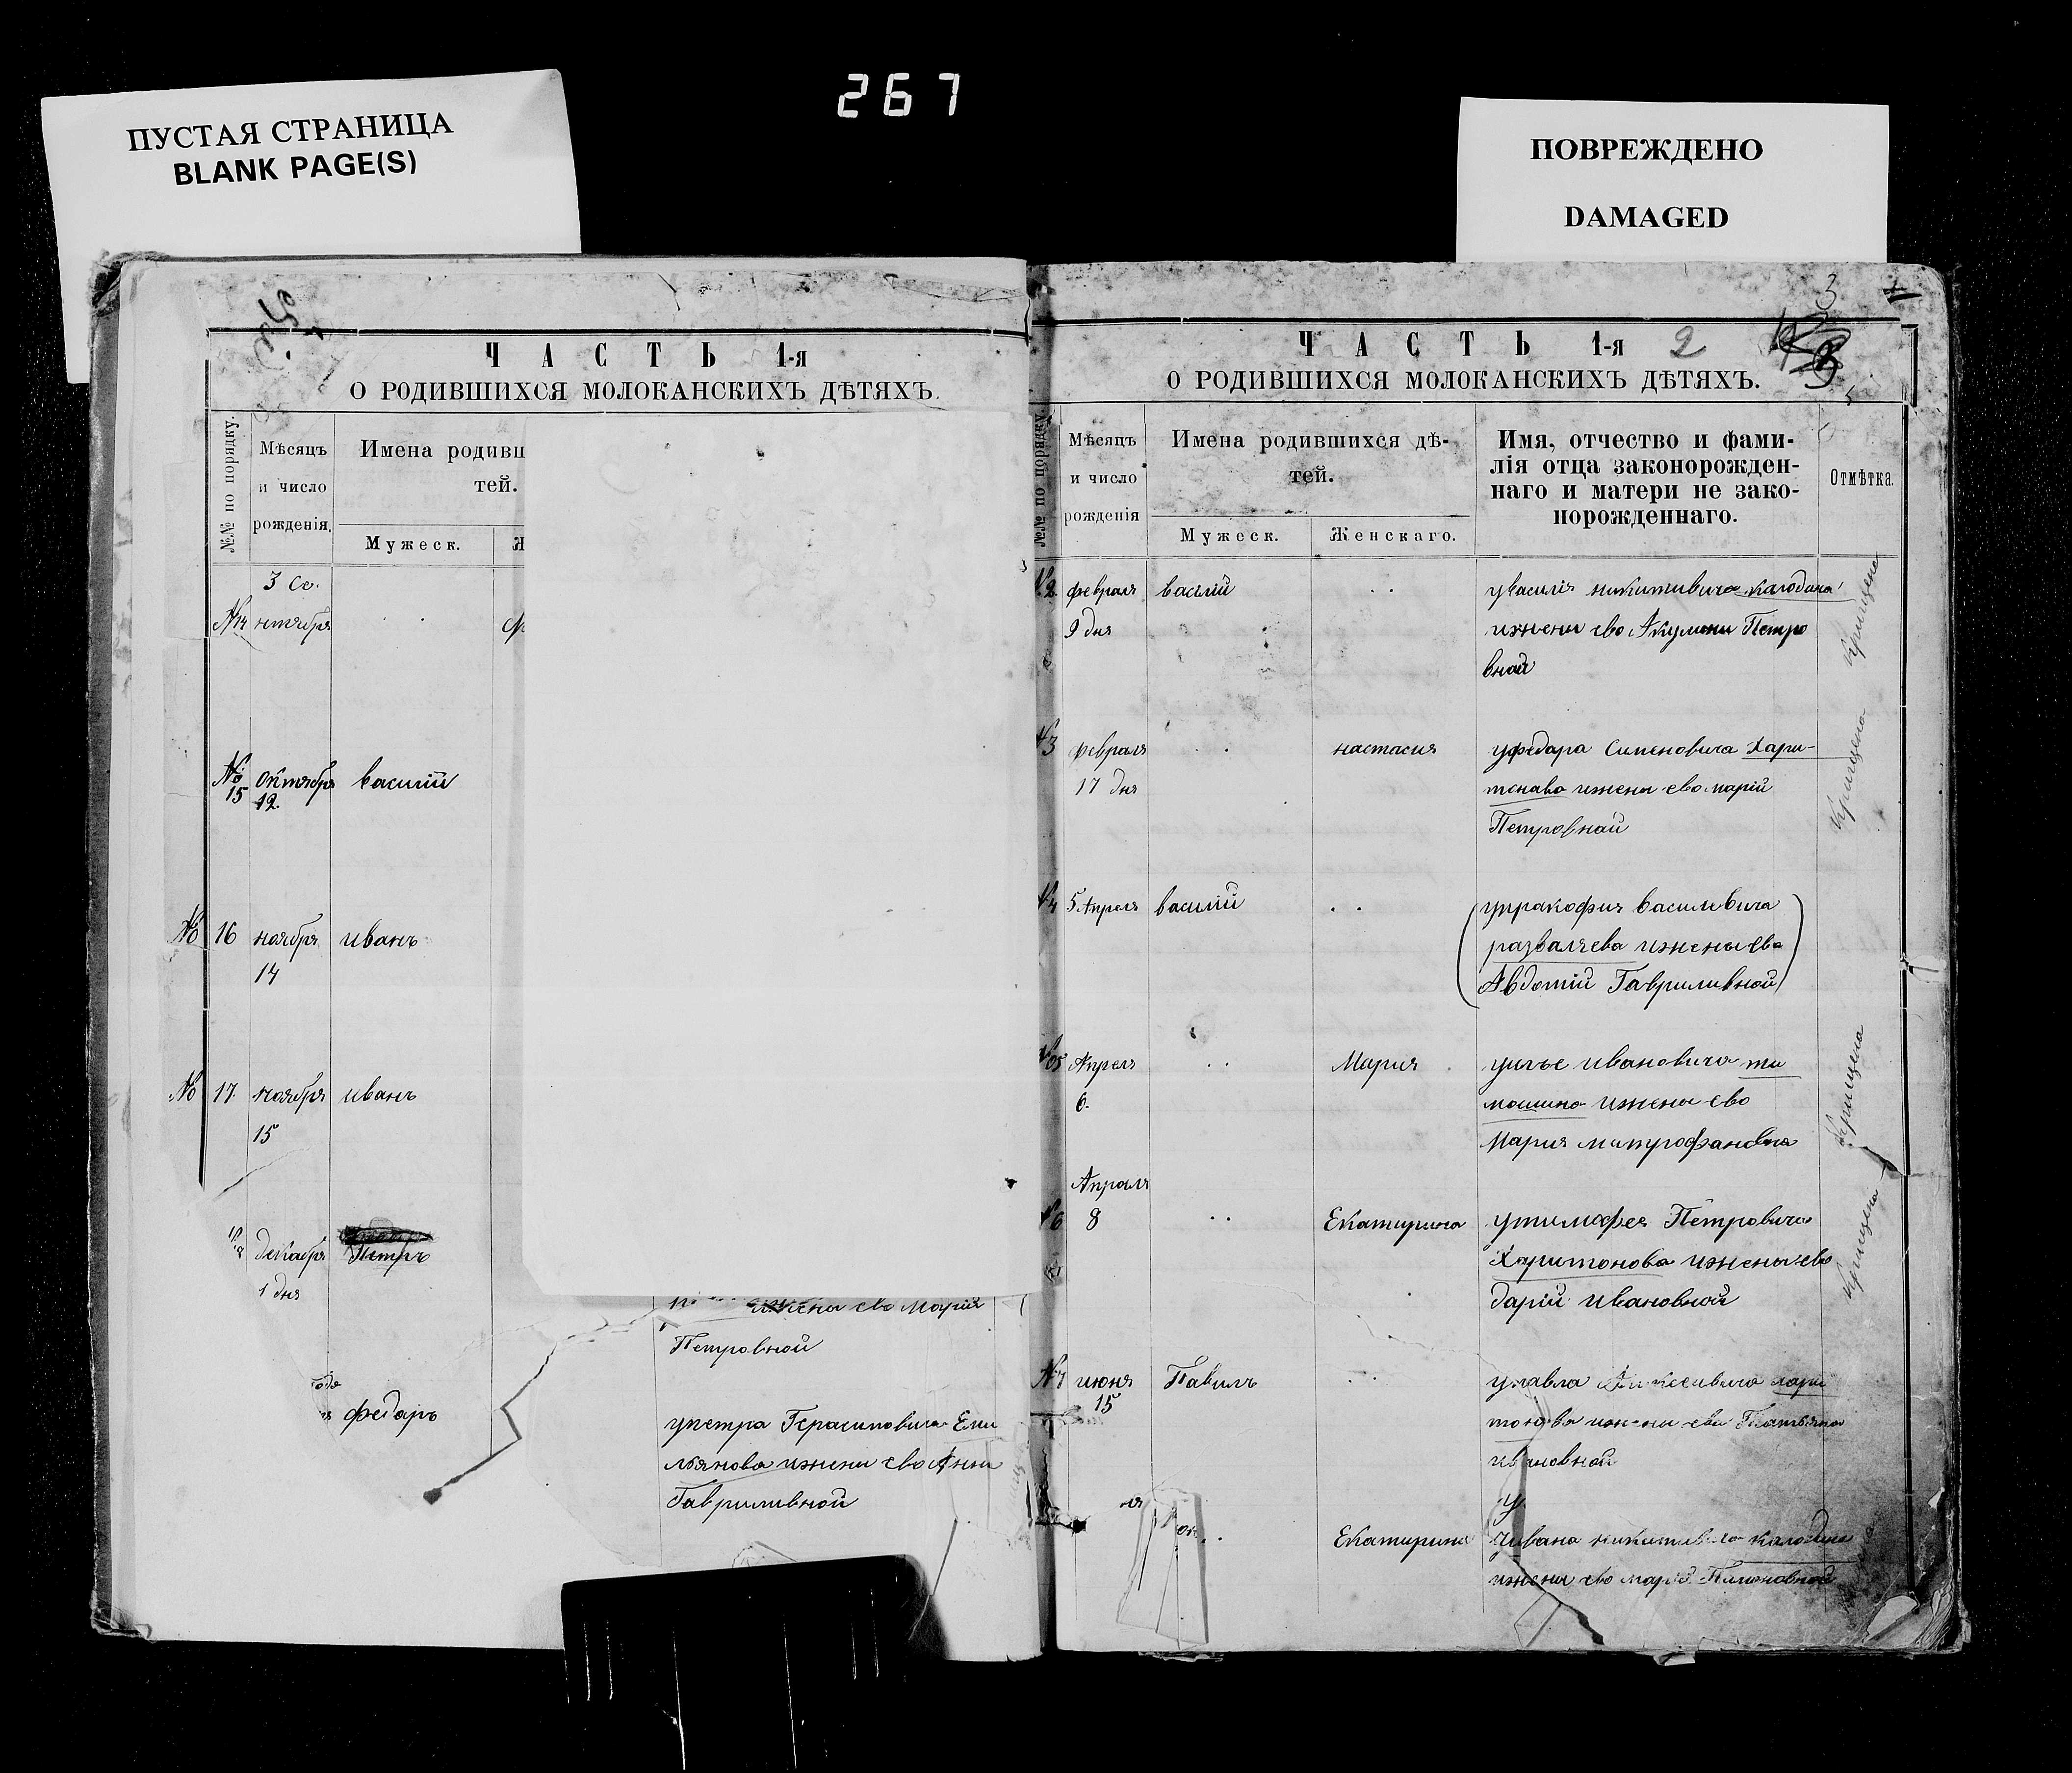 267
ПУСТАЯ СТРАНИЦА
BLANK PAGE(S)
ПОВРЕЖДЕНО
DAMAGED
ЧАСТЬ 1-я
О РОДИВШИХСЯ МОЛОКАНСКИХЪ ДѢТЯХЪ.
№№ по порядку.
Мѣсяцъ
и число
рожденія.
Имена родивш
тей.
Мужеск.
Ж
октября
№ 15 Октября василій
12.
№ 16 ноября иванъ
14
№ 17. ноября иванъ
15
декабря Петръ
1 дня
ижены ево Марія
Петровной
федаръ
упетра Герасимовича Еми
льянова ижены ево Анни
Гавриливной
3
ЧАСТЬ 1-я 2
О РОДИВШИХСЯ МОЛОКАНСКИХЪ ДѢТЯХЪ.
№№ по порядку
Мѣсяцъ
и число
рожденія
Имена родившихся дѣ-
тей.
Мужеск.
Женскаго.
Имя, отчество и фами-
лія отца законорожден-
наго и матери не зако-
норожденнаго.
Отмѣтка.
№2. февраля василій увасилія никитивича калодина
9 дня ижены ево Акулини Петро
вной
Крищена
№3 февраля настасия уфедара Сименовича Хари-
17 дня тонава ижены ево марій
Петровнай
Крищена
№4 5 Апреля василій упракофия василивича
разваляева ижены ево
Авдотій Гавриливной
№5 Апреля Мария уилье ивановича ти
6. машина ижены ево
Мария митрофановна
Крищена
Апраля
№6 8 Екатирина утимофея Петровича
Харитонова ижены ево
дарій ивановной
Крищена
№7 июня Павилъ упавла хари
15 тонова ижены ево Татьяна
ивановной
у
Екатирина уивана никитивича калодина
ижены ево марія